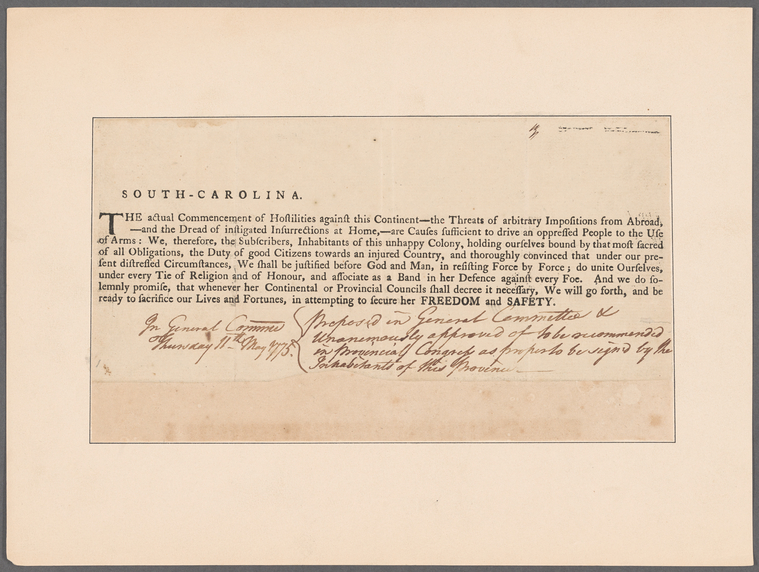 SOUTH-CAROLINA.
THE actual Commencement of Hoſtilities againſt this Continent—the Threats of arbitrary Impoſitions from Abroad,
—and the Dread of inſtigated Inſurrections at Home,—are Cauſes ſufficient to drive an oppreſſed People to the Uſe
of Arms: We, therefore, the Subſcribers, Inhabitants of this unhappy Colony, holding ourſelves bound by that moſt ſacred
of all Obligations, the Duty of good Citizens towards an injured Country, and thoroughly convinced that under our pre-
ſent diſtreſſed Circumſtances, We ſhall be juſtified before God and Man, in reſiſting Force by Force; do unite Ourſelves,
under every Tie of Religion and of Honour, and aſſociate as a Band in her Defence againſt every Foe. And we do ſo-
lemnly promiſe, that whenever her Continental or Provincial Councils ſhall decree it neceſſary, We will go forth, and be
ready to ſacrifice our Lives and Fortunes, in attempting to ſecure her FREEDOM and SAFETY.
In General Commee
Thursday 11th May 1775.
proposed in General Committee &
Unanemously approved of to be recommended
in Provincial Congress as proper to be signed by the
Inhabitants of this Province